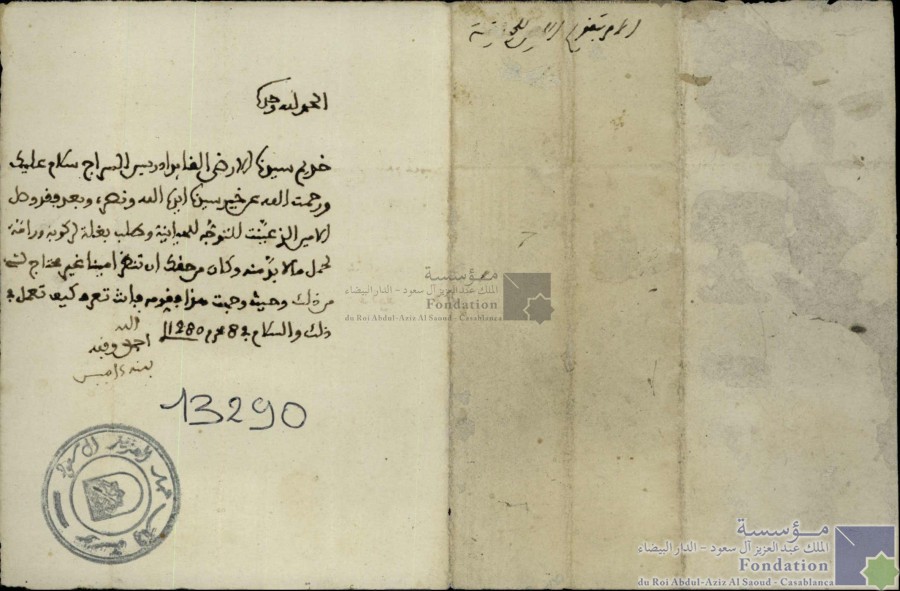 الحمد لله وحده
خديم سيدنا الارضى الفا إدريس السراج سلام عليك
ورحمت الله عن خير سيدنا ايده الله ونصره وبعد فقد وصل
الامين الذي عينت للتوجه للحيانية وطلب بغلة لركوبه ورافـة
لحمل ما لابد منه وكان من حقك ان تنظر امينا غير محتاج لشيء
من ذلك وحيث وجهت هذا بفومه فأنت تعرف كيف تعمل في
ذلك والسلام في 8 محرم 1280
الله
13290
عبد العزيز آل سعود
مؤسسة
الملك عبد العزيز آل سعود - الدار البيضاء
Fondation
du Roi Abdul-Aziz Al Saoud - Casablanca
مؤسسة
الملك عبد العزيز آل سعود - الدار البيضاء
Fondation
du Roi Abdul-Aziz Al Saoud - Casablanca